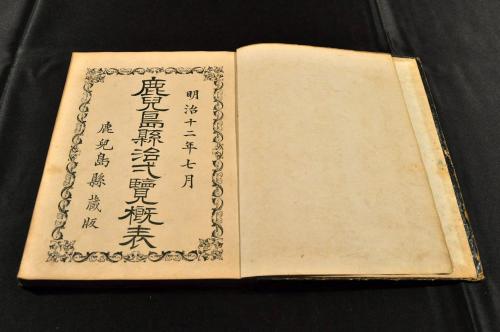 明治十二年七月
鹿兒島縣治弌覽概表
鹿兒島縣藏版